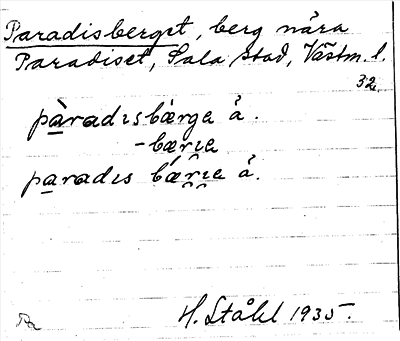 Paradisberget, berg nära
Paradiset, Sala stad, Västm. l.
32.
pàradısbærga å.
-bærıe
paradıs bǽrıe å.
H. Ståhl 1935.